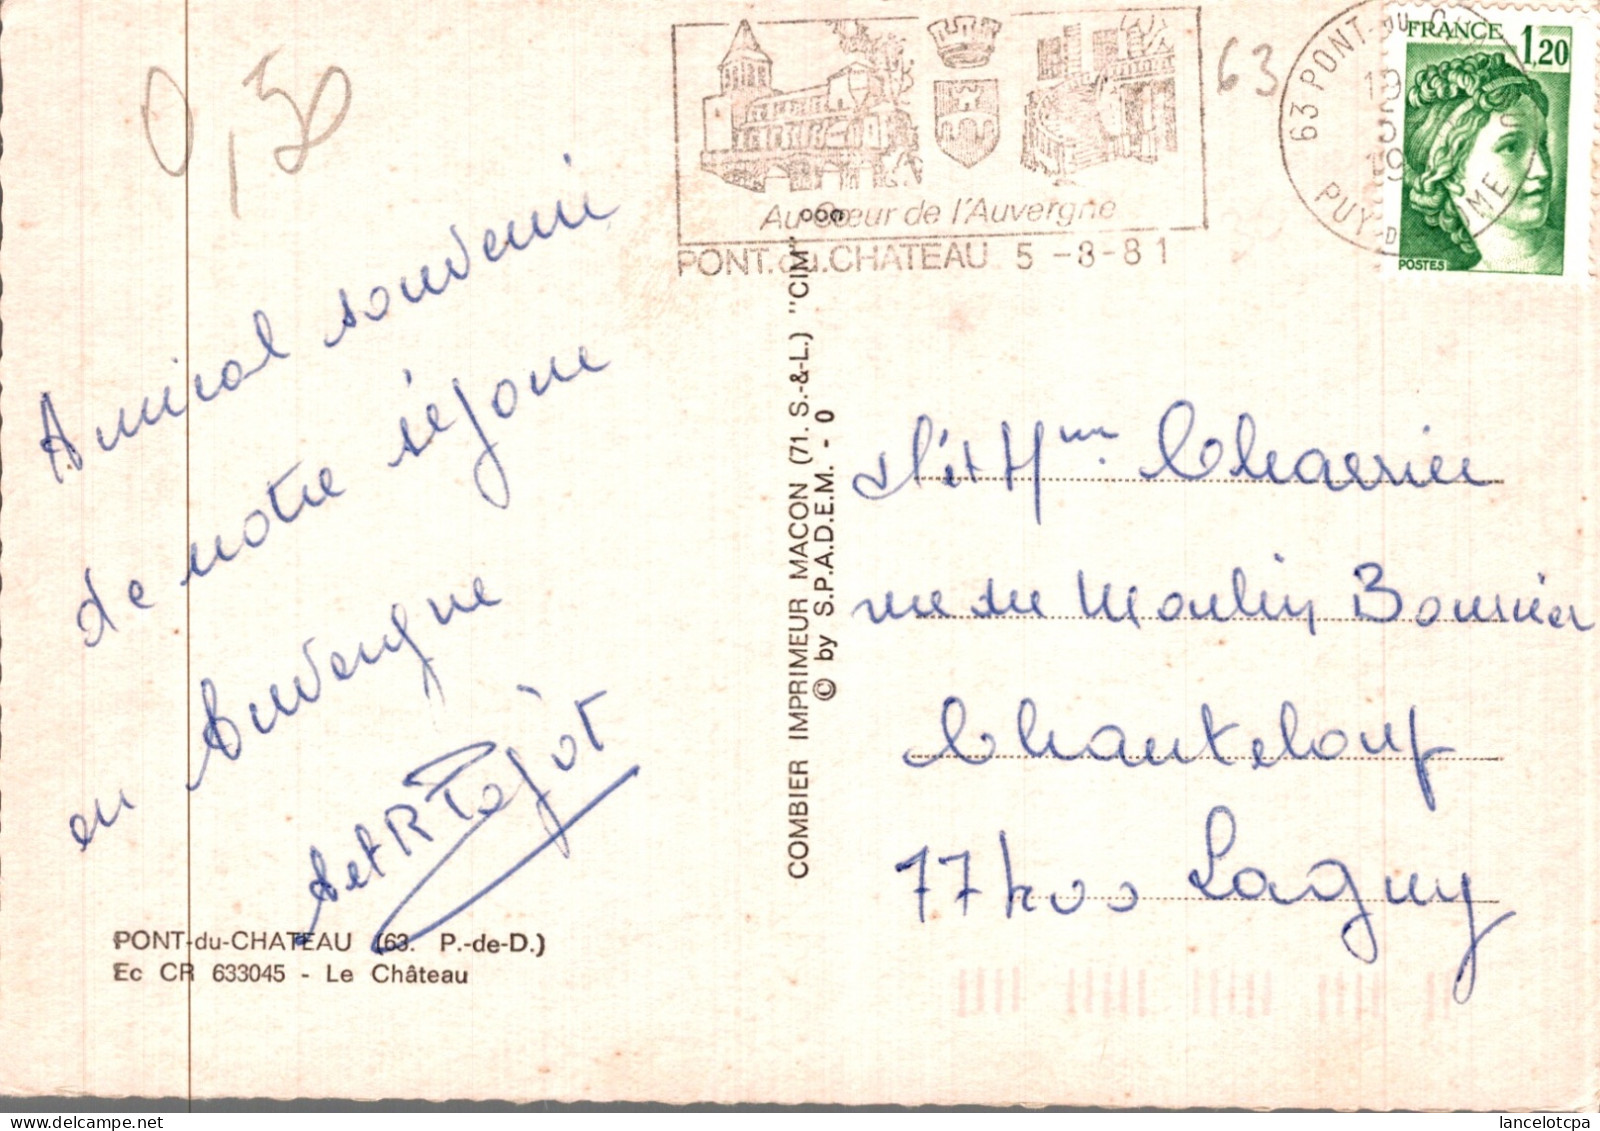 0,50
63
Au Cœur de l'Auvergne
PONT.du.CHATEAU 5 -8-81
63 PONT-DU-C
19
PUY-D ME
FRANCE 1,20
POSTES
Amical souvenir
de notre séjour
en Auvergne
A et R Tajot
PONT-du-CHATEAU (63. P.-de-D.)
Ec CR 633045 - Le Château
COMBIER IMPRIMEUR MACON (71. S.-&-L.) "CIM"
© by S.P.A.D.E.M. - 0
M et Mme Charrier
rue du Moulin Bourrier
Chanteloup
77400 Lagny
lancelotcpa